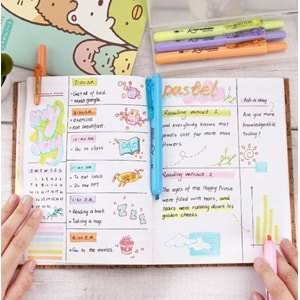 • Get out of bed.
• wash gargle.
• exercise
• eat breakfast.
• Go to class
• To eat lunch
• Do the PPT
• Reading a book
• Taking a nap
• Go to the movies.
pastel
Reading extract 1.
and everybody knows that
ama's cost far more than
flowers.
Reading extract 2.
The eyes of the Happy Prince
were filled with tears, and
tears were running down his
golden cheeks.
Ask a day
Are you more
knowledgeable
Today!